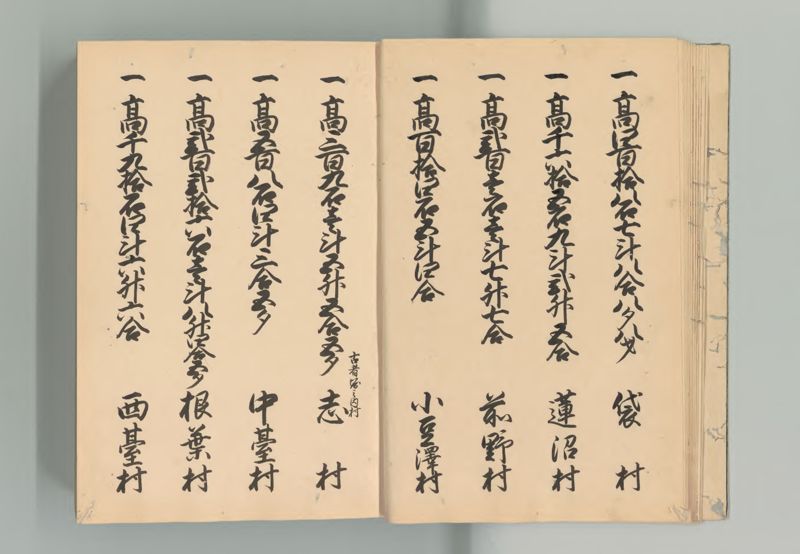 一 高四百拾八石七斗八合八夕八才 袋村
一 高千六拾五石九斗弐升五合 蓮沼村
一 高弐百壱石壱斗七升七合 前野村
一 高百拾四石五斗四合 小豆澤村
一 高三百九石壱斗五升五合五夕 志村
一 高五百八石四斗三合五夕 中臺村
一 高弐百弐拾六石壱斗八升四合五夕 根葉村
一 高千九拾石四斗六升六合 西臺村